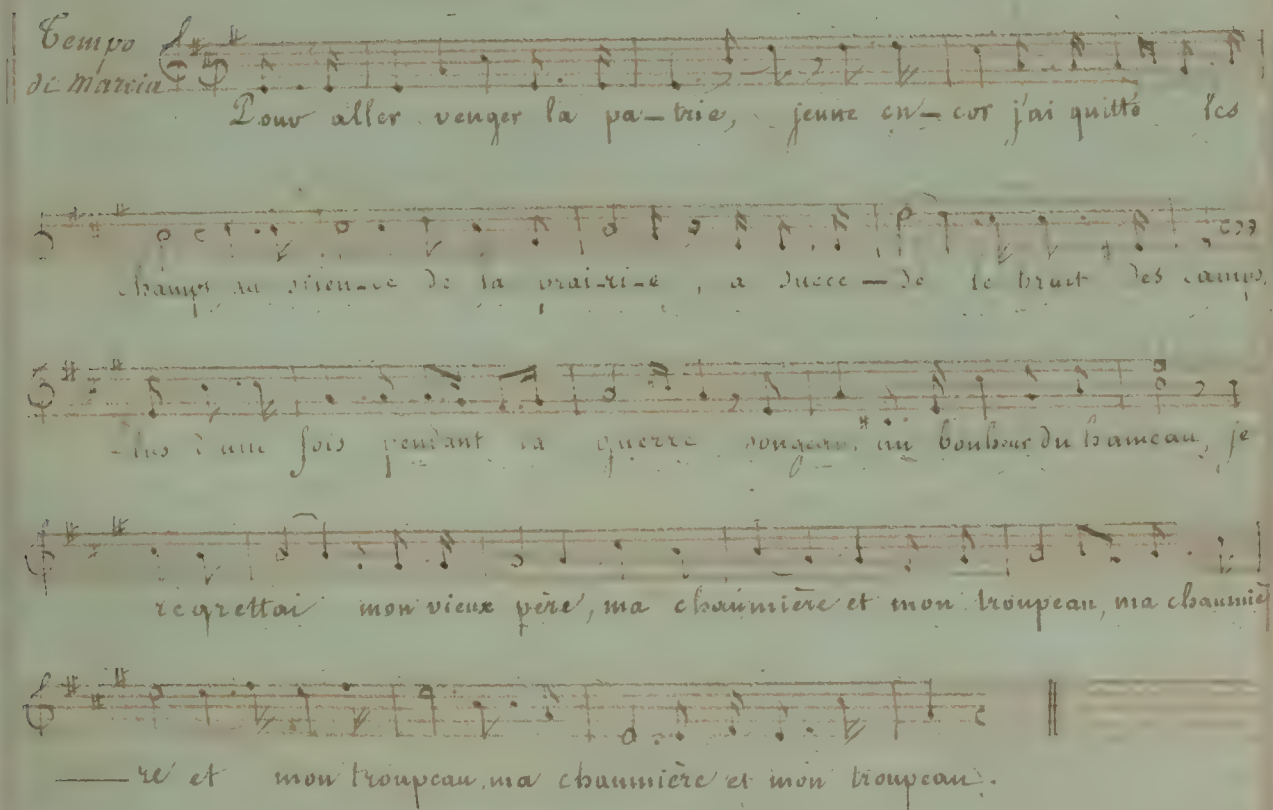 Tempo
di Marcia
Pour aller venger la pa-trie, jeune en-cor j'ai quitté les
champs au silen-ce de la prai-ri-e, a succe-dé le bruit des camps,
Plus d'une fois pendant la guerre songeant au bonheur du hameau, je
regrettai mon vieux père, ma chaumière et mon troupeau, ma chaumiè
-re et mon troupeau, ma chaumière et mon troupeau.